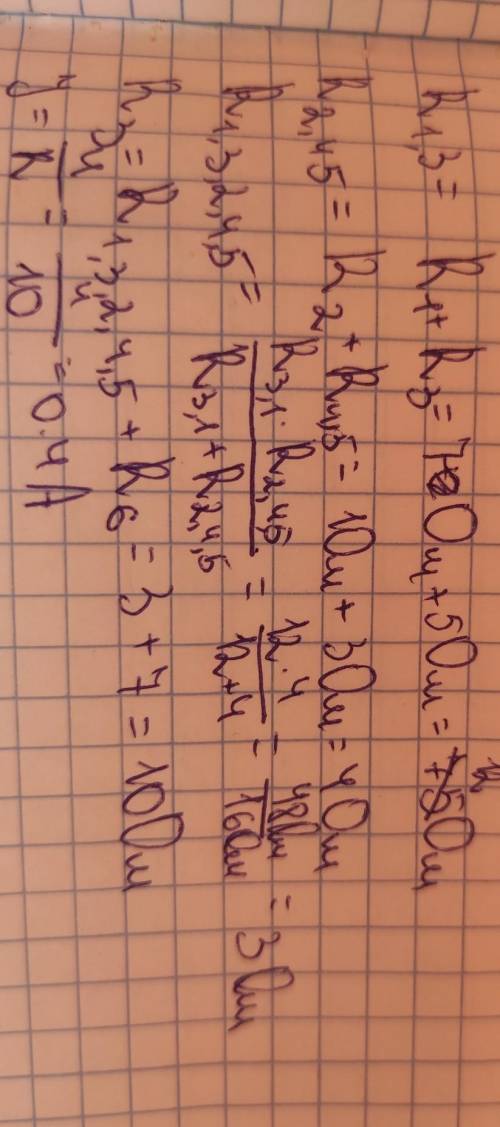 R1,3 = R1 + R3 = 7 Ом + 5 Ом = 12 Ом
R2,45 = R2 + R4,5 = 1 Ом + 3 Ом = 4 Ом
R1,3,2,4,5 = R3,1 · R2,45 / R3,1 + R2,4,5 = 12 · 4 / 12 + 4 = 48 Ом / 16 Ом = 3 Ом
R = R1,3,2,4,5 + R6 = 3 + 7 = 10 Ом
J = 4 / R = 4 / 10 = 0.4 A